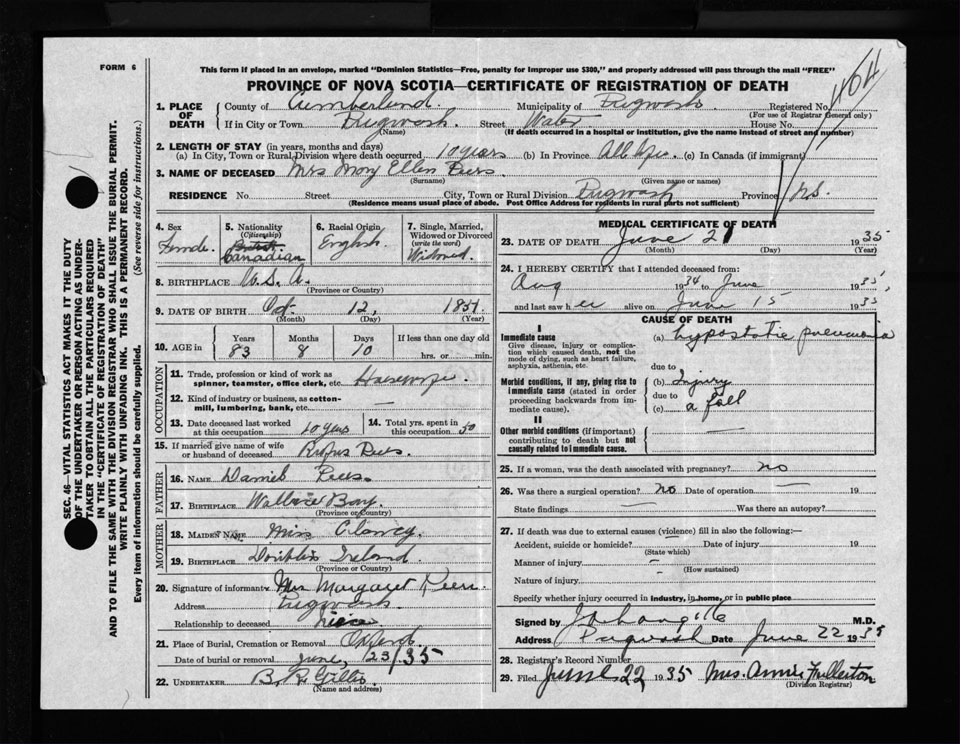 FORM 6
This form if placed in an envelope, marked "Dominion Statistics—Free, penalty for improper use $300," and properly addressed will pass through the mail "FREE"
PROVINCE OF NOVA SCOTIA—CERTIFICATE OF REGISTRATION OF DEATH
1. PLACE OF DEATH County of Cumberland. Municipality of Pugwash Registered No.
(For use of Registrar General only)
If in City or Town Pugwash. Street Water House No.
(Name) (If death occurred in a hospital or institution, give the name instead of street and number)
2. LENGTH OF STAY (in years, months and days)
(a) In City, Town or Rural Division where death occurred 10 years (b) In Province All life. (c) In Canada (if immigrant)
3. NAME OF DECEASED Mrs Mary Ellen
(Surname) (Given name or names)
RESIDENCE No. Street City, Town or Rural Division Pugwash Province N.S.
(Residence means usual place of abode. Post Office Address for residents in rural parts not sufficient)
4. Sex
Female.
5. Nationality
(Citizenship)
British
Canadian
6. Racial Origin
English.
7. Single, Married, Widowed or Divorced
(write the word)
Widowed.
8. BIRTHPLACE U.S.A.
(Province or Country)
9. DATE OF BIRTH Oct. 12, 1851
(Month) (Day) (Year)
10. AGE in Years Months Days If less than one day old
83 8 10 hrs. or min.
OCCUPATION
11. Trade, profession or kind of work as spinner, teamster, office clerk, etc. Housewife.
12. Kind of industry or business, as cotton-mill, lumbering, bank, etc. —
13. Date deceased last worked at this occupation 10 years 14. Total yrs. spent in this occupation 50
15. If married give name of wife or husband of deceased Rufus
FATHER
16. NAME Daniel
17. BIRTHPLACE Wallace Bay
(Province or Country)
MOTHER
18. MAIDEN NAME Miss Clancy.
19. BIRTHPLACE Ireland
(Province or Country)
20. Signature of informant Mrs Margaret
Address Pugwash.
Relationship to deceased niece
21. Place of Burial, Cremation or Removal Oxford
Date of burial or removal June, 23/35
22. UNDERTAKER B. R. Gillis
(Name and address)
MEDICAL CERTIFICATE OF DEATH
23. DATE OF DEATH June 21 1935
(Month) (Day) (Year)
24. I HEREBY CERTIFY that I attended deceased from:
Aug 1934 to June 1935,
and last saw her alive on June 15 1935
CAUSE OF DEATH
I
Immediate cause
Give disease, injury or complication which caused death, not the mode of dying, such as heart failure, asphyxia, asthenia, etc.
(a) hypostatic pneumonia
due to
Morbid conditions, if any, giving rise to immediate cause (stated in order proceeding backwards from immediate cause).
(b) Injury
due to
(c) a fall
II
Other morbid conditions (if important) contributing to death but not causally related to immediate cause. —
25. If a woman, was the death associated with pregnancy? no
26. Was there a surgical operation? no Date of operation — 19
State findings — Was there an autopsy?
27. If death was due to external causes (violence) fill in also the following:—
Accident, suicide or homicide? Date of injury 19
(State which)
Manner of injury —
(How sustained)
Nature of injury —
Specify whether injury occurred in industry, in home, or in public place
Signed by M.D.
Address Pugwash Date June 22 1935
28. Registrar's Record Number
29. Filed June 22 1935 Mrs. Annie Fullerton
(Division Registrar)
SEC. 46—VITAL STATISTICS ACT MAKES IT THE DUTY
OF THE UNDERTAKER OR PERSON ACTING AS UNDER-
TAKER TO OBTAIN ALL THE PARTICULARS REQUIRED
IN THE "CERTIFICATE OF REGISTRATION OF DEATH"
AND TO FILE THE SAME WITH THE DIVISION REGISTRAR WHO SHALL ISSUE THE BURIAL PERMIT.
WRITE PLAINLY WITH UNFADING INK. THIS IS A PERMANENT RECORD.
Every item of information should be carefully supplied. (See reverse side for instructions.)